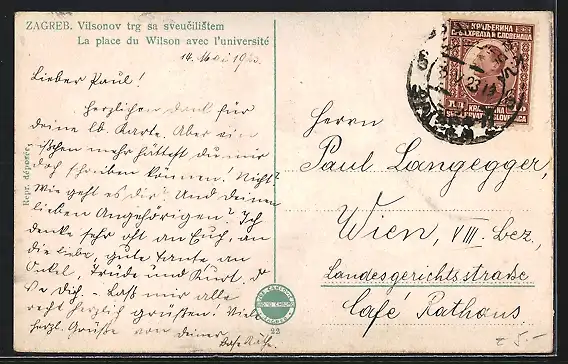 ZAGREB. Vilsonov trg sa sveučilištem
La place du Wilson avec l'université
14. Mai 1923.
Lieber Paul!
Herzlichen Dank für
deine lb. Karte. Aber ein
bischen mehr hättest du mir
doch schreiben können! Nicht?
Wie geht es dir? Und deinen
lieben Angehörigen? Ich
denke sehr oft an Euch, an
die liebe, gute Tante an
Onkel, Trude und Kurt,
Dich. – Laß mir alle
recht herzlich grüßen! Viele
herzl. Grüße von deiner
Käthe.
Repr. déposée
22
КРАЉЕВИНА
СРБА ХРВАТА И СЛОВЕНАЦА
Herrn
Paul Langegger,
Wien, VIII. Bez,
Landesgerichtsstraße
Café Rathaus
5.-